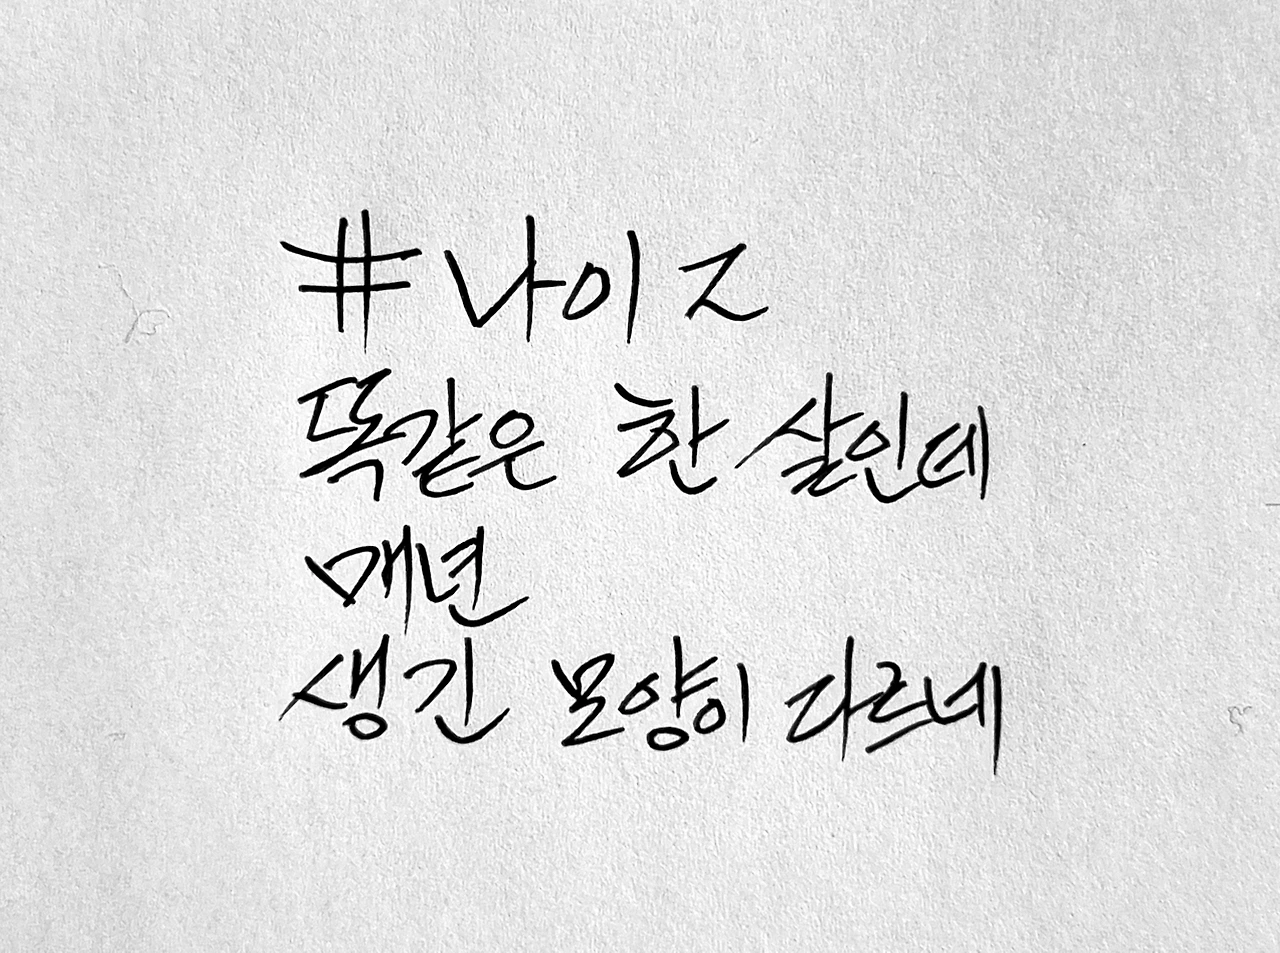 #나이 2
똑같은 한 살인데
매년
생긴 모양이 다르네